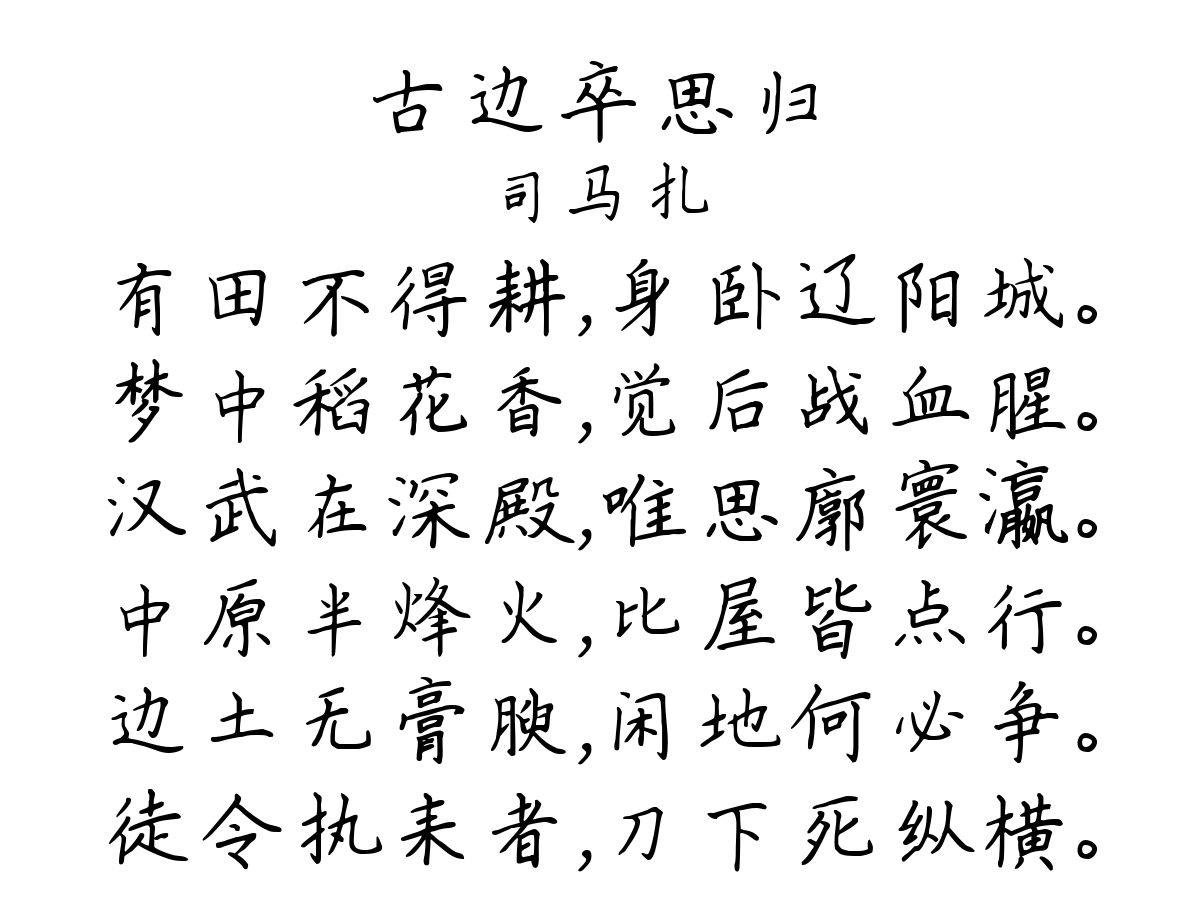 古边卒思归
司马扎
有田不得耕,身卧辽阳城。
梦中稻花香,觉后战血腥。
汉武在深殿,唯思廓寰瀛。
中原半烽火,比屋皆点行。
边土无膏腴,闲地何必争。
徒令执耒者,刀下死纵横。